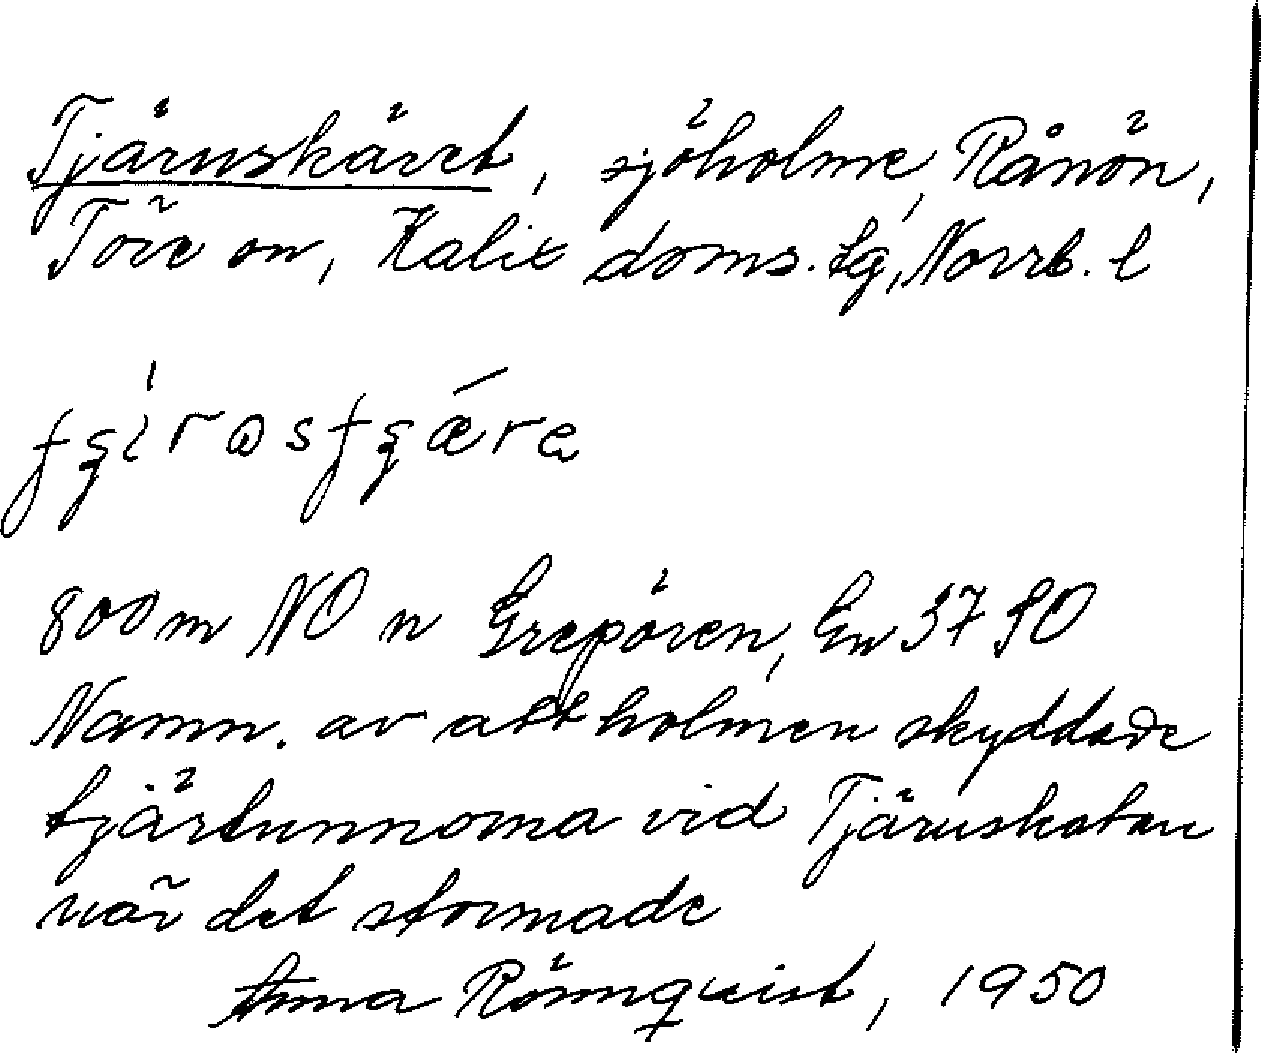 Tjäruskäret, sjöholme, Rånön,
Töre sn, Kalix doms. lg, Norrb. l
800 m NO n Grepören, En 37 SO
Namn. av att holmen skyddade
tjärtunnorna vid Tjäruskatan
när det stormade
Anna Rönnquist, 1950